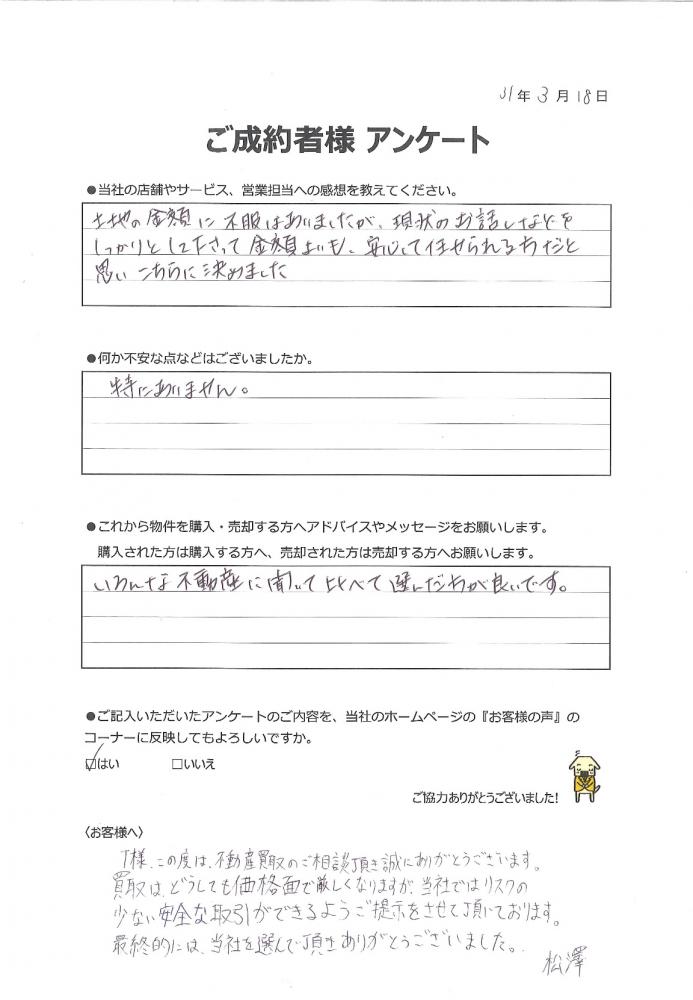 31年3月18日
ご成約者様 アンケート
●当社の店舗やサービス、営業担当への感想を教えてください。
土地の金額に不服はありましたが、現状のお話しなどを
しっかりとして下さって金額よりも、安心して任せられる方だと
思いこちらに決めました
●何か不安な点などはございましたか。
特にありません。
●これから物件を購入・売却する方へアドバイスやメッセージをお願いします。
購入された方は購入する方へ、売却された方は売却する方へお願いします。
いろんな不動産に聞いて比べて選んだ方が良いです。
●ご記入いただいたアンケートのご内容を、当社のホームページの『お客様の声』の
コーナーに反映してもよろしいですか。
☑はい □いいえ
ご協力ありがとうございました!
〈お客様へ〉
T様、この度は、不動産買取のご相談頂き誠にありがとうございます。
買取は、どうしても価格面で厳しくなりますが、当社ではリスクの
少ない安全な取引ができるようご提示をさせて頂いております。
最終的には、当社を選んで頂きありがとうございました。
松澤